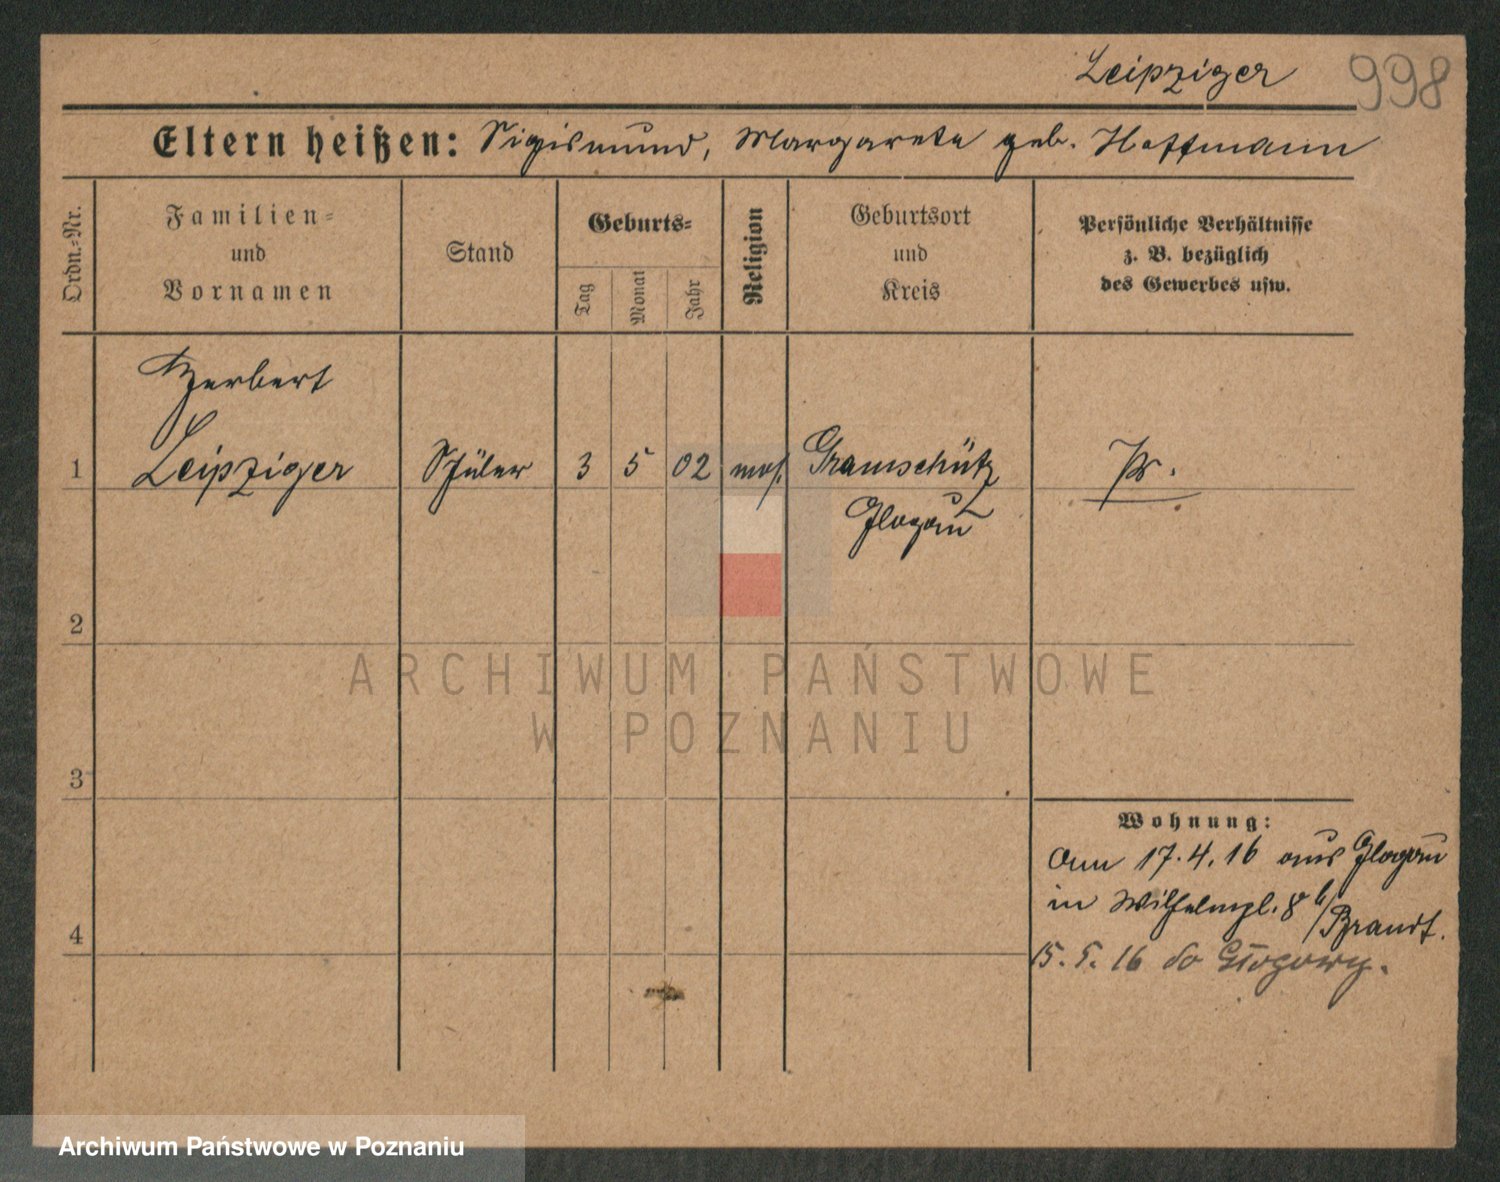 Leipziger 998
Eltern heißen: Sigismund, Margarete geb. Hoffmann
Ordn.=Nr.
Familien=
und
Vornamen
Stand
Geburts=
Tag
Monat
Jahr
Religion
Geburtsort
und
Kreis
Persönliche Verhältnisse
z. B. bezüglich
des Gewerbes usw.
Herbert
1 Leipziger Schüler 3 5 02 mos. Gramschütz Pr.
Glogau
2
3
Wohnung:
Am 17.4.16 aus Glogau
in Wilhelmpl. 8 b/Brandt.
4
15.5.16 do Głogowy.
ARCHIWUM PAŃSTWOWE
W POZNANIU
Archiwum Państwowe w Poznaniu